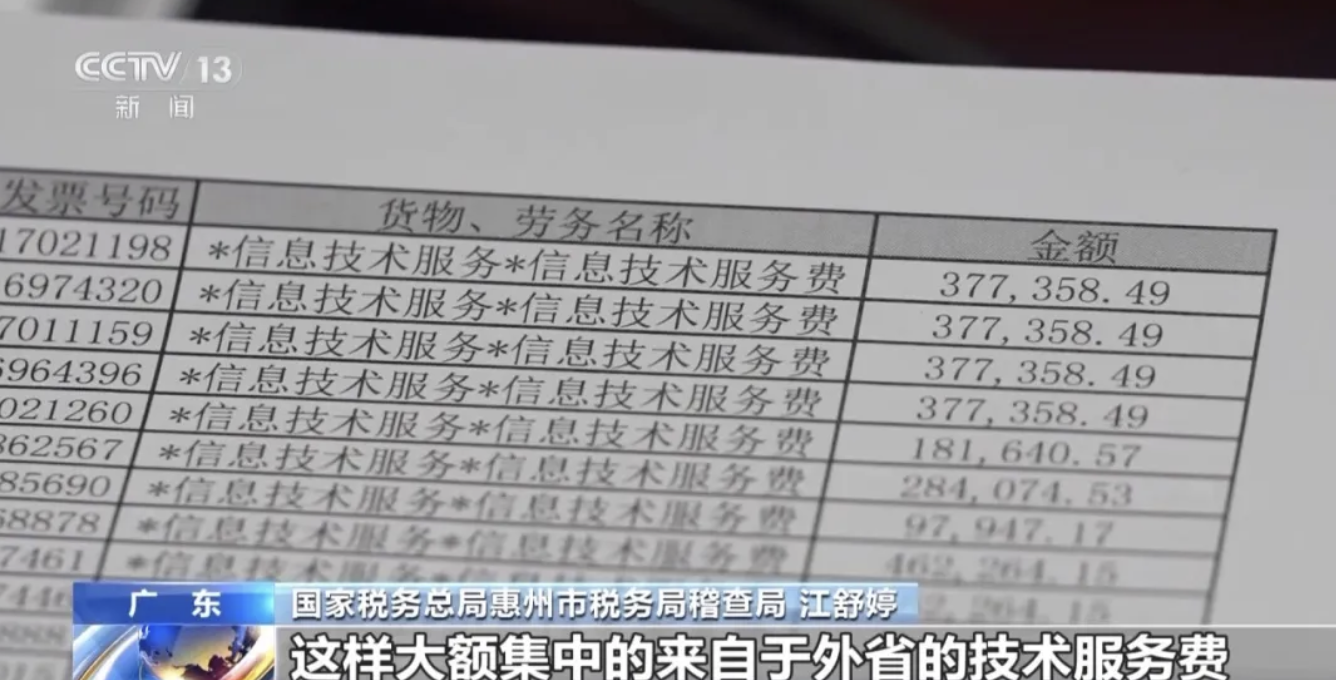 CCTV 13
新闻
发票号码 货物、劳务名称 金额
17021198 *信息技术服务*信息技术服务费 377,358.49
6974320 *信息技术服务*信息技术服务费 377,358.49
7011159 *信息技术服务*信息技术服务费 377,358.49
6964396 *信息技术服务*信息技术服务费 377,358.49
021260 *信息技术服务*信息技术服务费 181,640.57
862567 *信息技术服务*信息技术服务费 284,074.53
85690 *信息技术服务*信息技术服务费 97,947.17
68878 *信息技术服务*信息技术服务费 462,264.15
7461 *信息技术服务
广东 国家税务总局惠州市税务局稽查局 江舒婷
这样大额集中的来自于外省的技术服务费